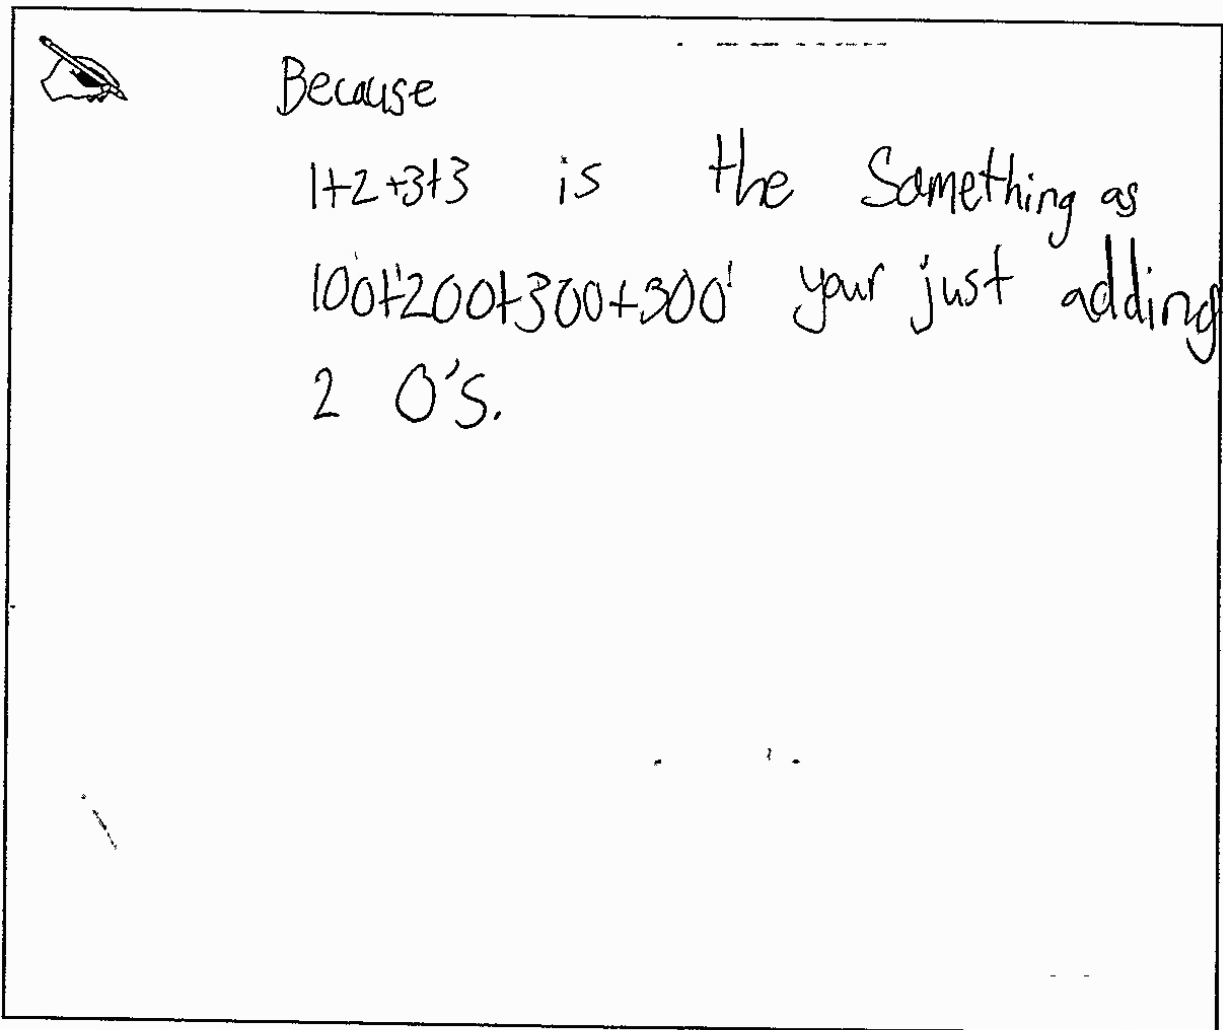 Because
1+2+3+3 is the Samething as
100+200+300+300 your just adding
2 0's.